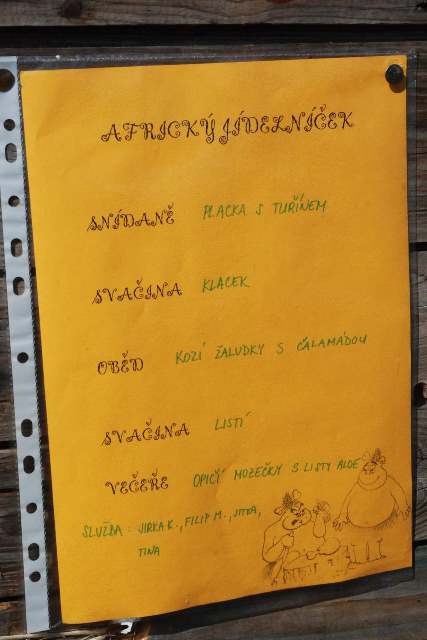 AFRICKÝ JÍDELNÍČEK
SNÍDANĚ PLACKA S TUŘÍNEM
SVAČINA KLACEK
OBĚD KOZÍ ŽALUDKY S ČALAMÁDOU
SVAČINA LISTÍ
VEČEŘE OPIČÍ MOZEČKY S LISTY ALOE
SLUŽBA: JIRKA K., FILIP M., JITKA,
TINA